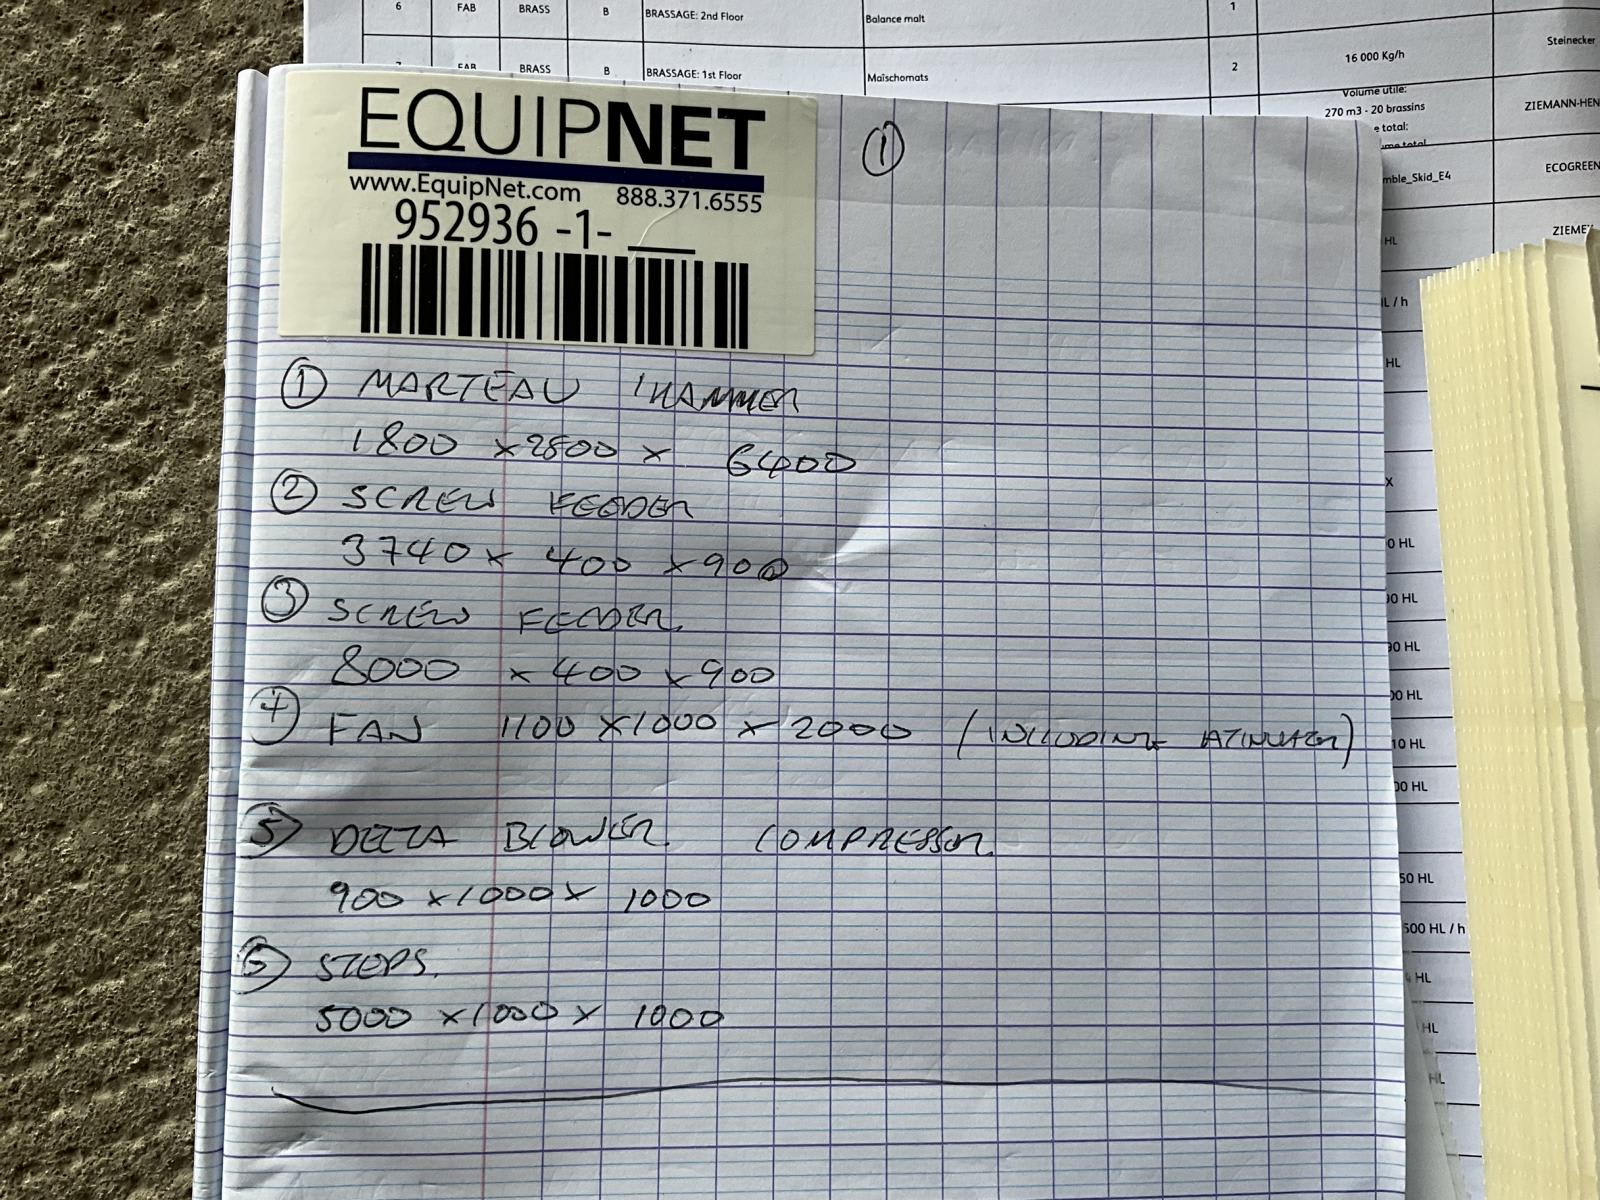 6 FAB BRASS B BRASSAGE: 2nd Floor Balance malt 1
7 FAB BRASS B BRASSAGE: 1st Floor Maïschomats 2 16 000 Kg/h Steinecker
Volume utile:
270 m3 - 20 brassins ZIEMANN-HEN
e total:
ume total
mble_Skid_E4 ECOGREEN
HL ZIEME
L / h
HL
X
0 HL
00 HL
90 HL
00 HL
10 HL
00 HL
50 HL
500 HL / h
HL
HL
HL
EQUIPNET
www.EquipNet.com 888.371.6555
952936 -1- ___
①
① MARTEAU / HAMMER
1800 x 2800 x 6400
② SCREW FEEDER
3740 x 400 x 900
③ SCREW FEEDER
8000 x 400 x 900
④ FAN 1100 x 1000 x 2000 (INCLUDING
⑤ DELTA BLOWER COMPRESSOR
900 x 1000 x 1000
⑥ STEPS
5000 x 1000 x 1000